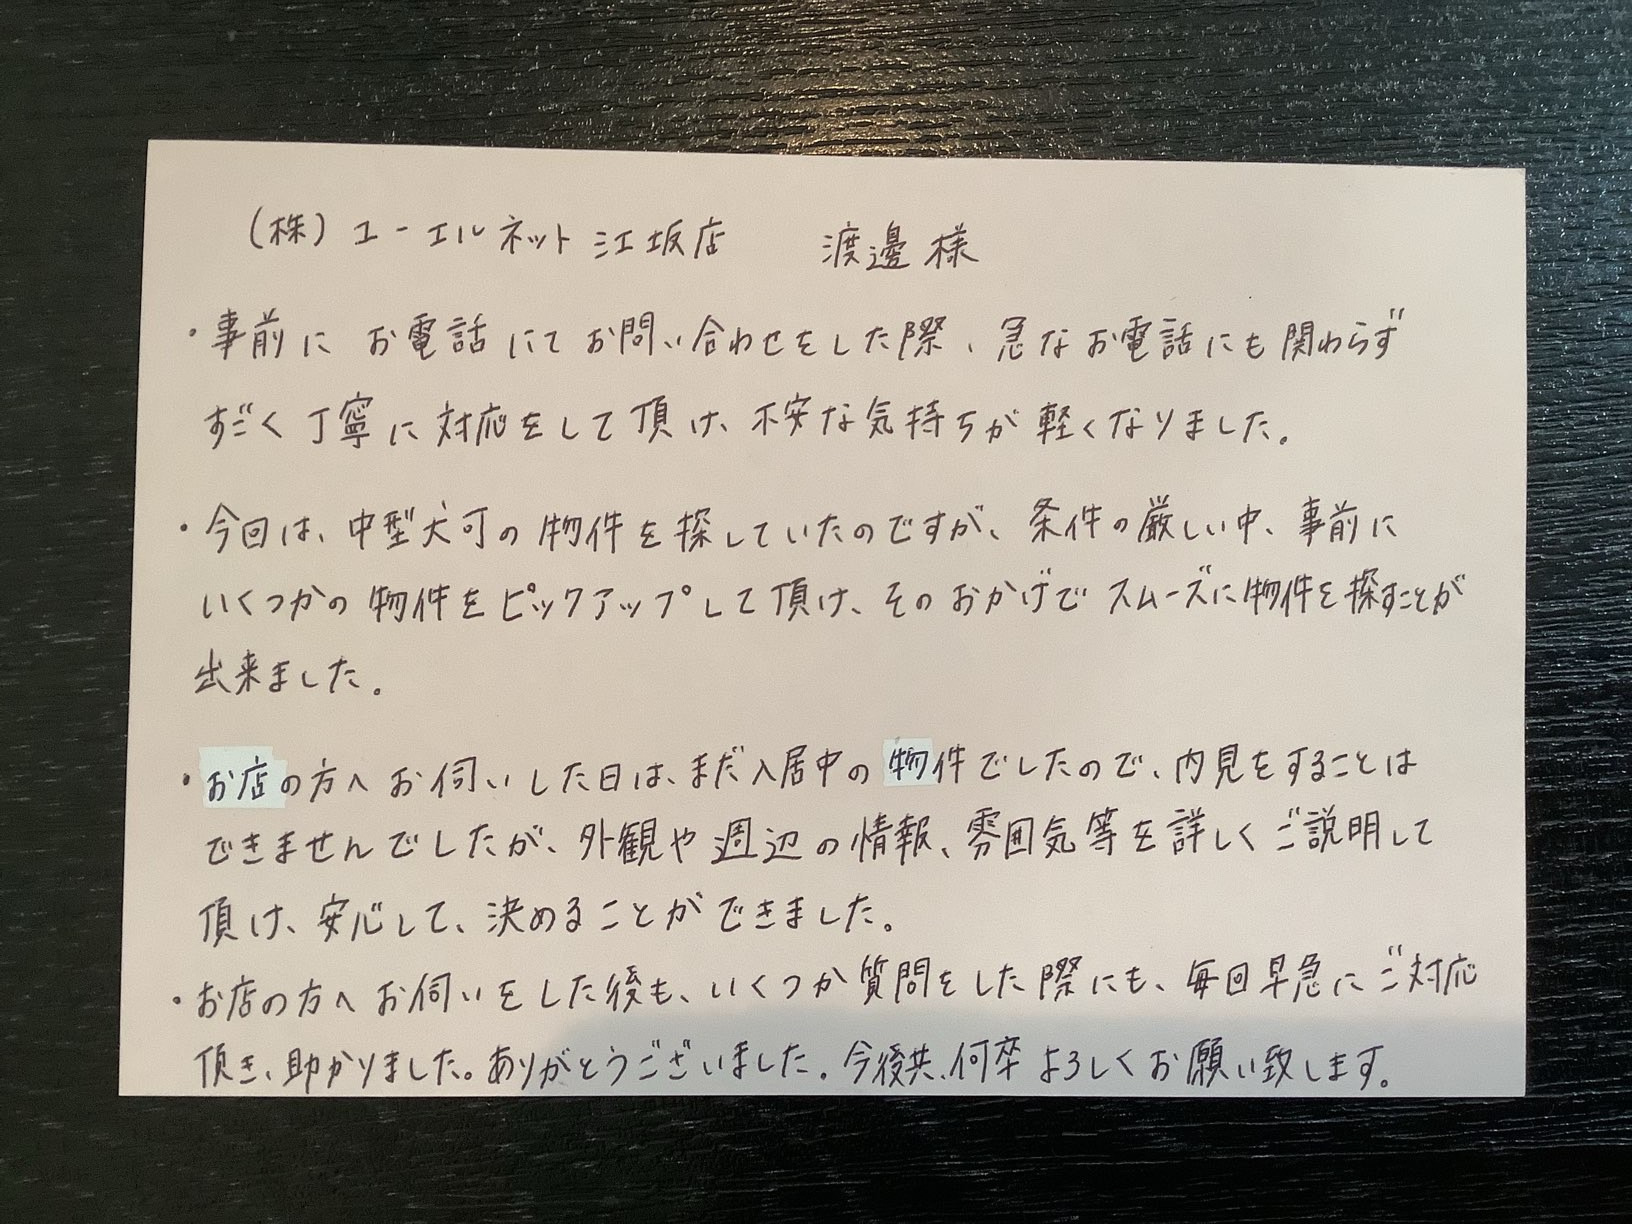 (株)ユーエルネット江坂店　渡邊様
・事前に お電話にてお問い合わせをした際、急なお電話にも関わらず
すごく丁寧に対応をして頂け、不安な気持ちが軽くなりました。
・今回は、中型犬可の物件を探していたのですが、条件の厳しい中、事前に
いくつかの物件をピックアップして頂け、そのおかげでスムーズに物件を探すことが
出来ました。
・お店の方へお伺いした日は、まだ入居中の物件でしたので、内見をすることは
できませんでしたが、外観や週辺の情報、雰囲気等を詳しくご説明して
頂け、安心して、決めることができました。
・お店の方へお伺いをした後も、いくつか質問をした際にも、毎回早急にご対応
頂き、助かりました。ありがとうございました。今後共、何卒よろしくお願い致します。